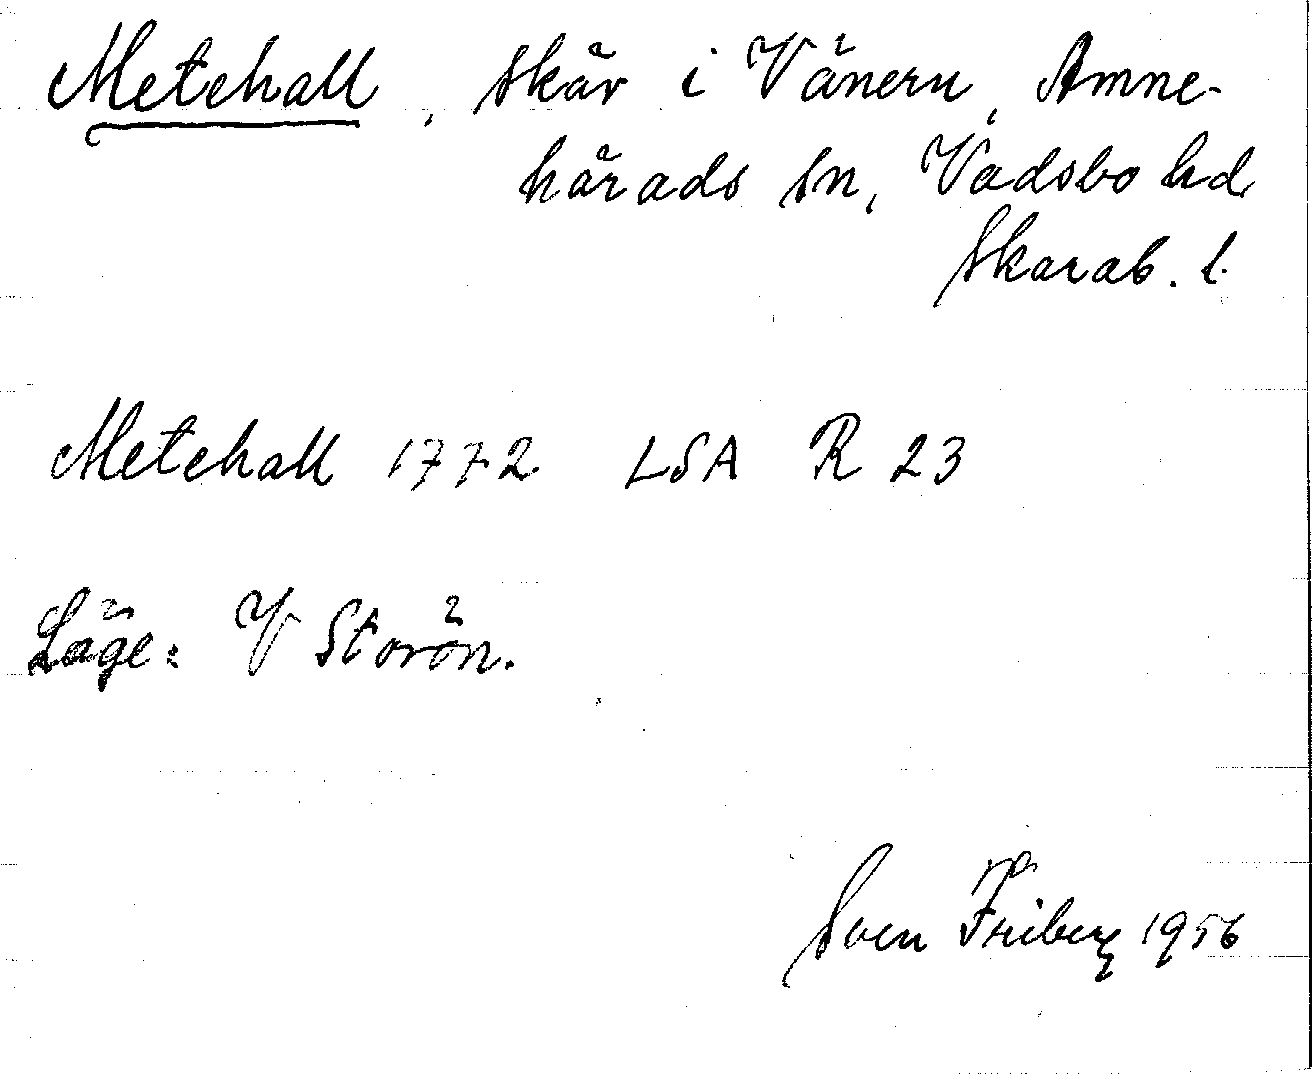 Metehall, skär i Vänern, Amne-
härads sn, Vadsbo hd
Skarab. l.
Metehall 1772 LSA R 23
Läge: V Storön.
Sven Friberg 1956